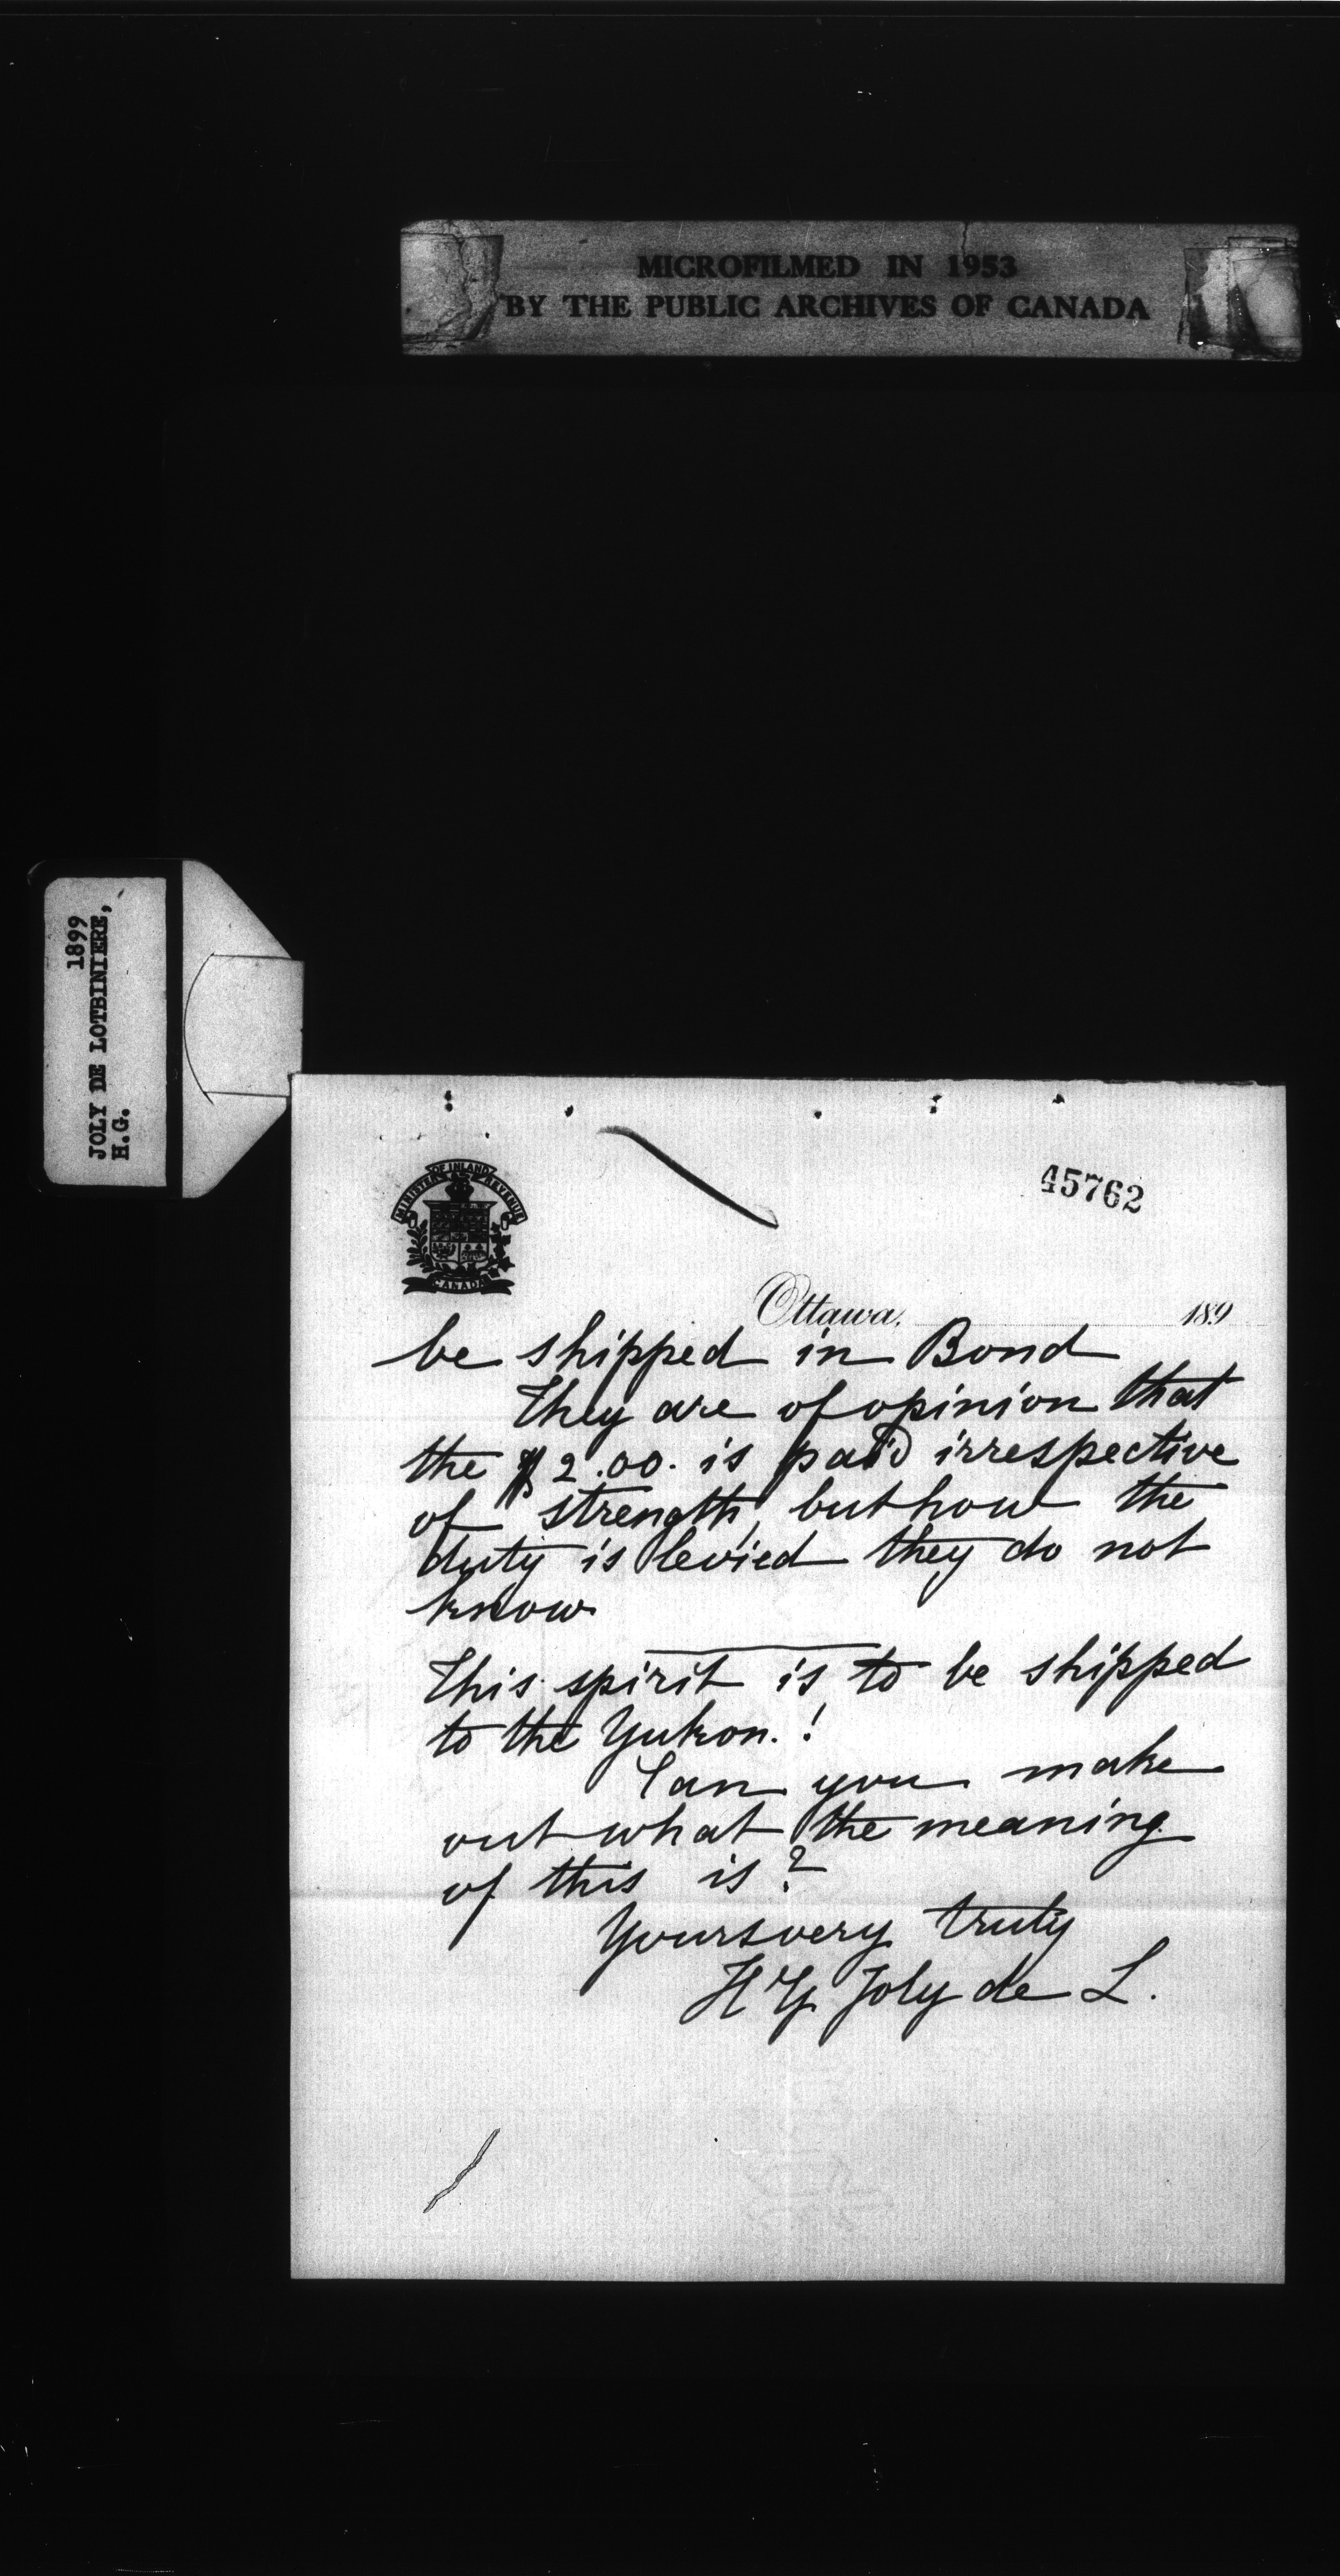 MICROFILMED IN 1953
BY THE PUBLIC ARCHIVES OF CANADA
1899
JOLY DE LOTBINIERE,
H.G.
MINISTER OF INLAND REVENUE
CANADA
45762
Ottawa, 189
be shipped in Bond
They are of opinion that
the $2.00. is paid irrespective
of strength, but how the
duty is levied they do not
know
This spirit is to be shipped
to the Yukon.!
Can you make
out what the meaning
of this is?
Yours very truly
H G Joly de L.